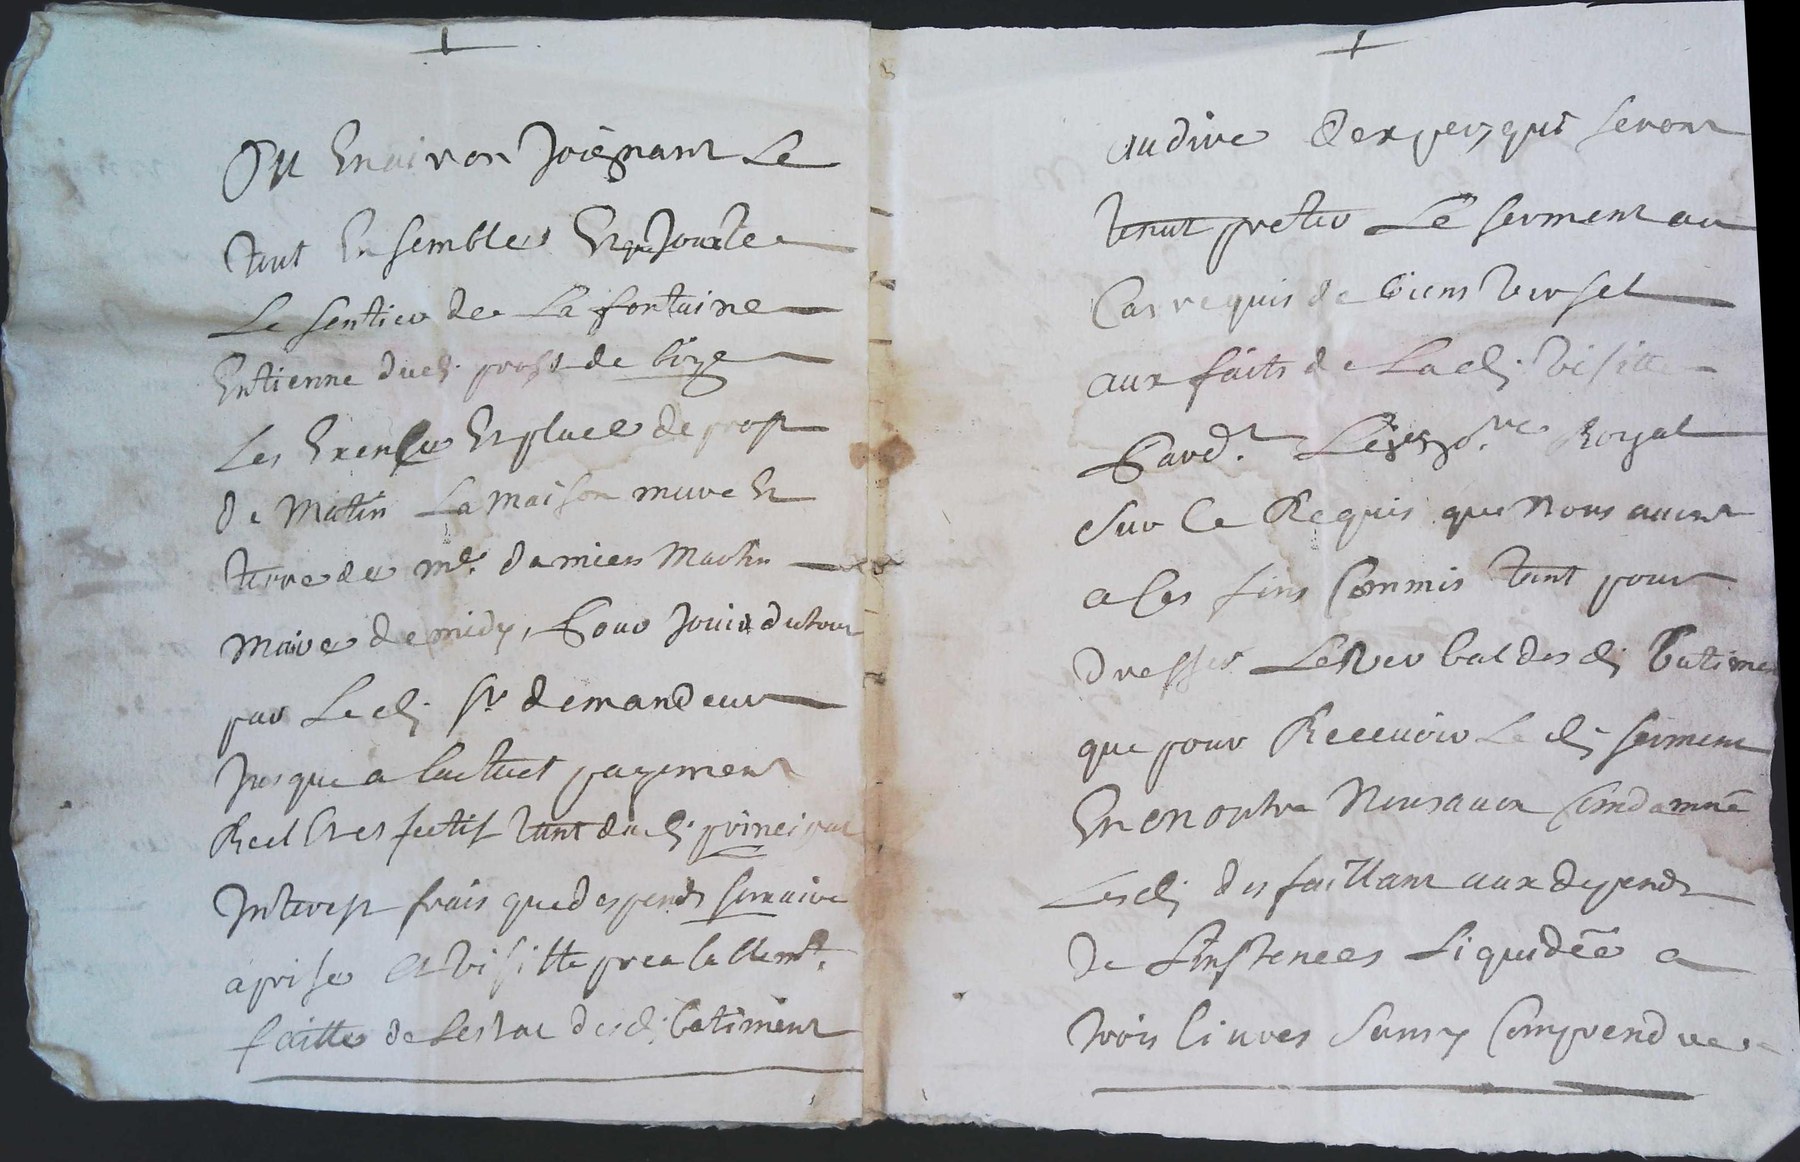 Ou Environ Joiègnant Le
tout Ensembles En Jouxte
Le sentier de La fontaine
Entienne dud. proft de bize
Les En place de proft
de Matin La maison mure Et
terre de me. damien Martin
maire de midy, Pour Jouir du tout
par Led. Sr demandeur
Jusque a lactuel payement
Reel Et esfectif tant dud. principal
Interest frais que despends somaire
aprise Et visitte prealablemt.
faitte de Lestat desd. batiment
au dire dexpers qui seront
tenut preter Le serment au
Cas requis de biens verser
aux faits de Lad. visitte
Pard.t Royal
sur Ce Requis que Nous avont
a Ces fins Commis tant pour
dresser Le Verbal desd. batimen
que pour Recevoir Led. serment
En en outre Nous avon Condamné
Lesd. desfaillant aux depends
de Linstences Liquidée a
trois livres Sans y Comprendre